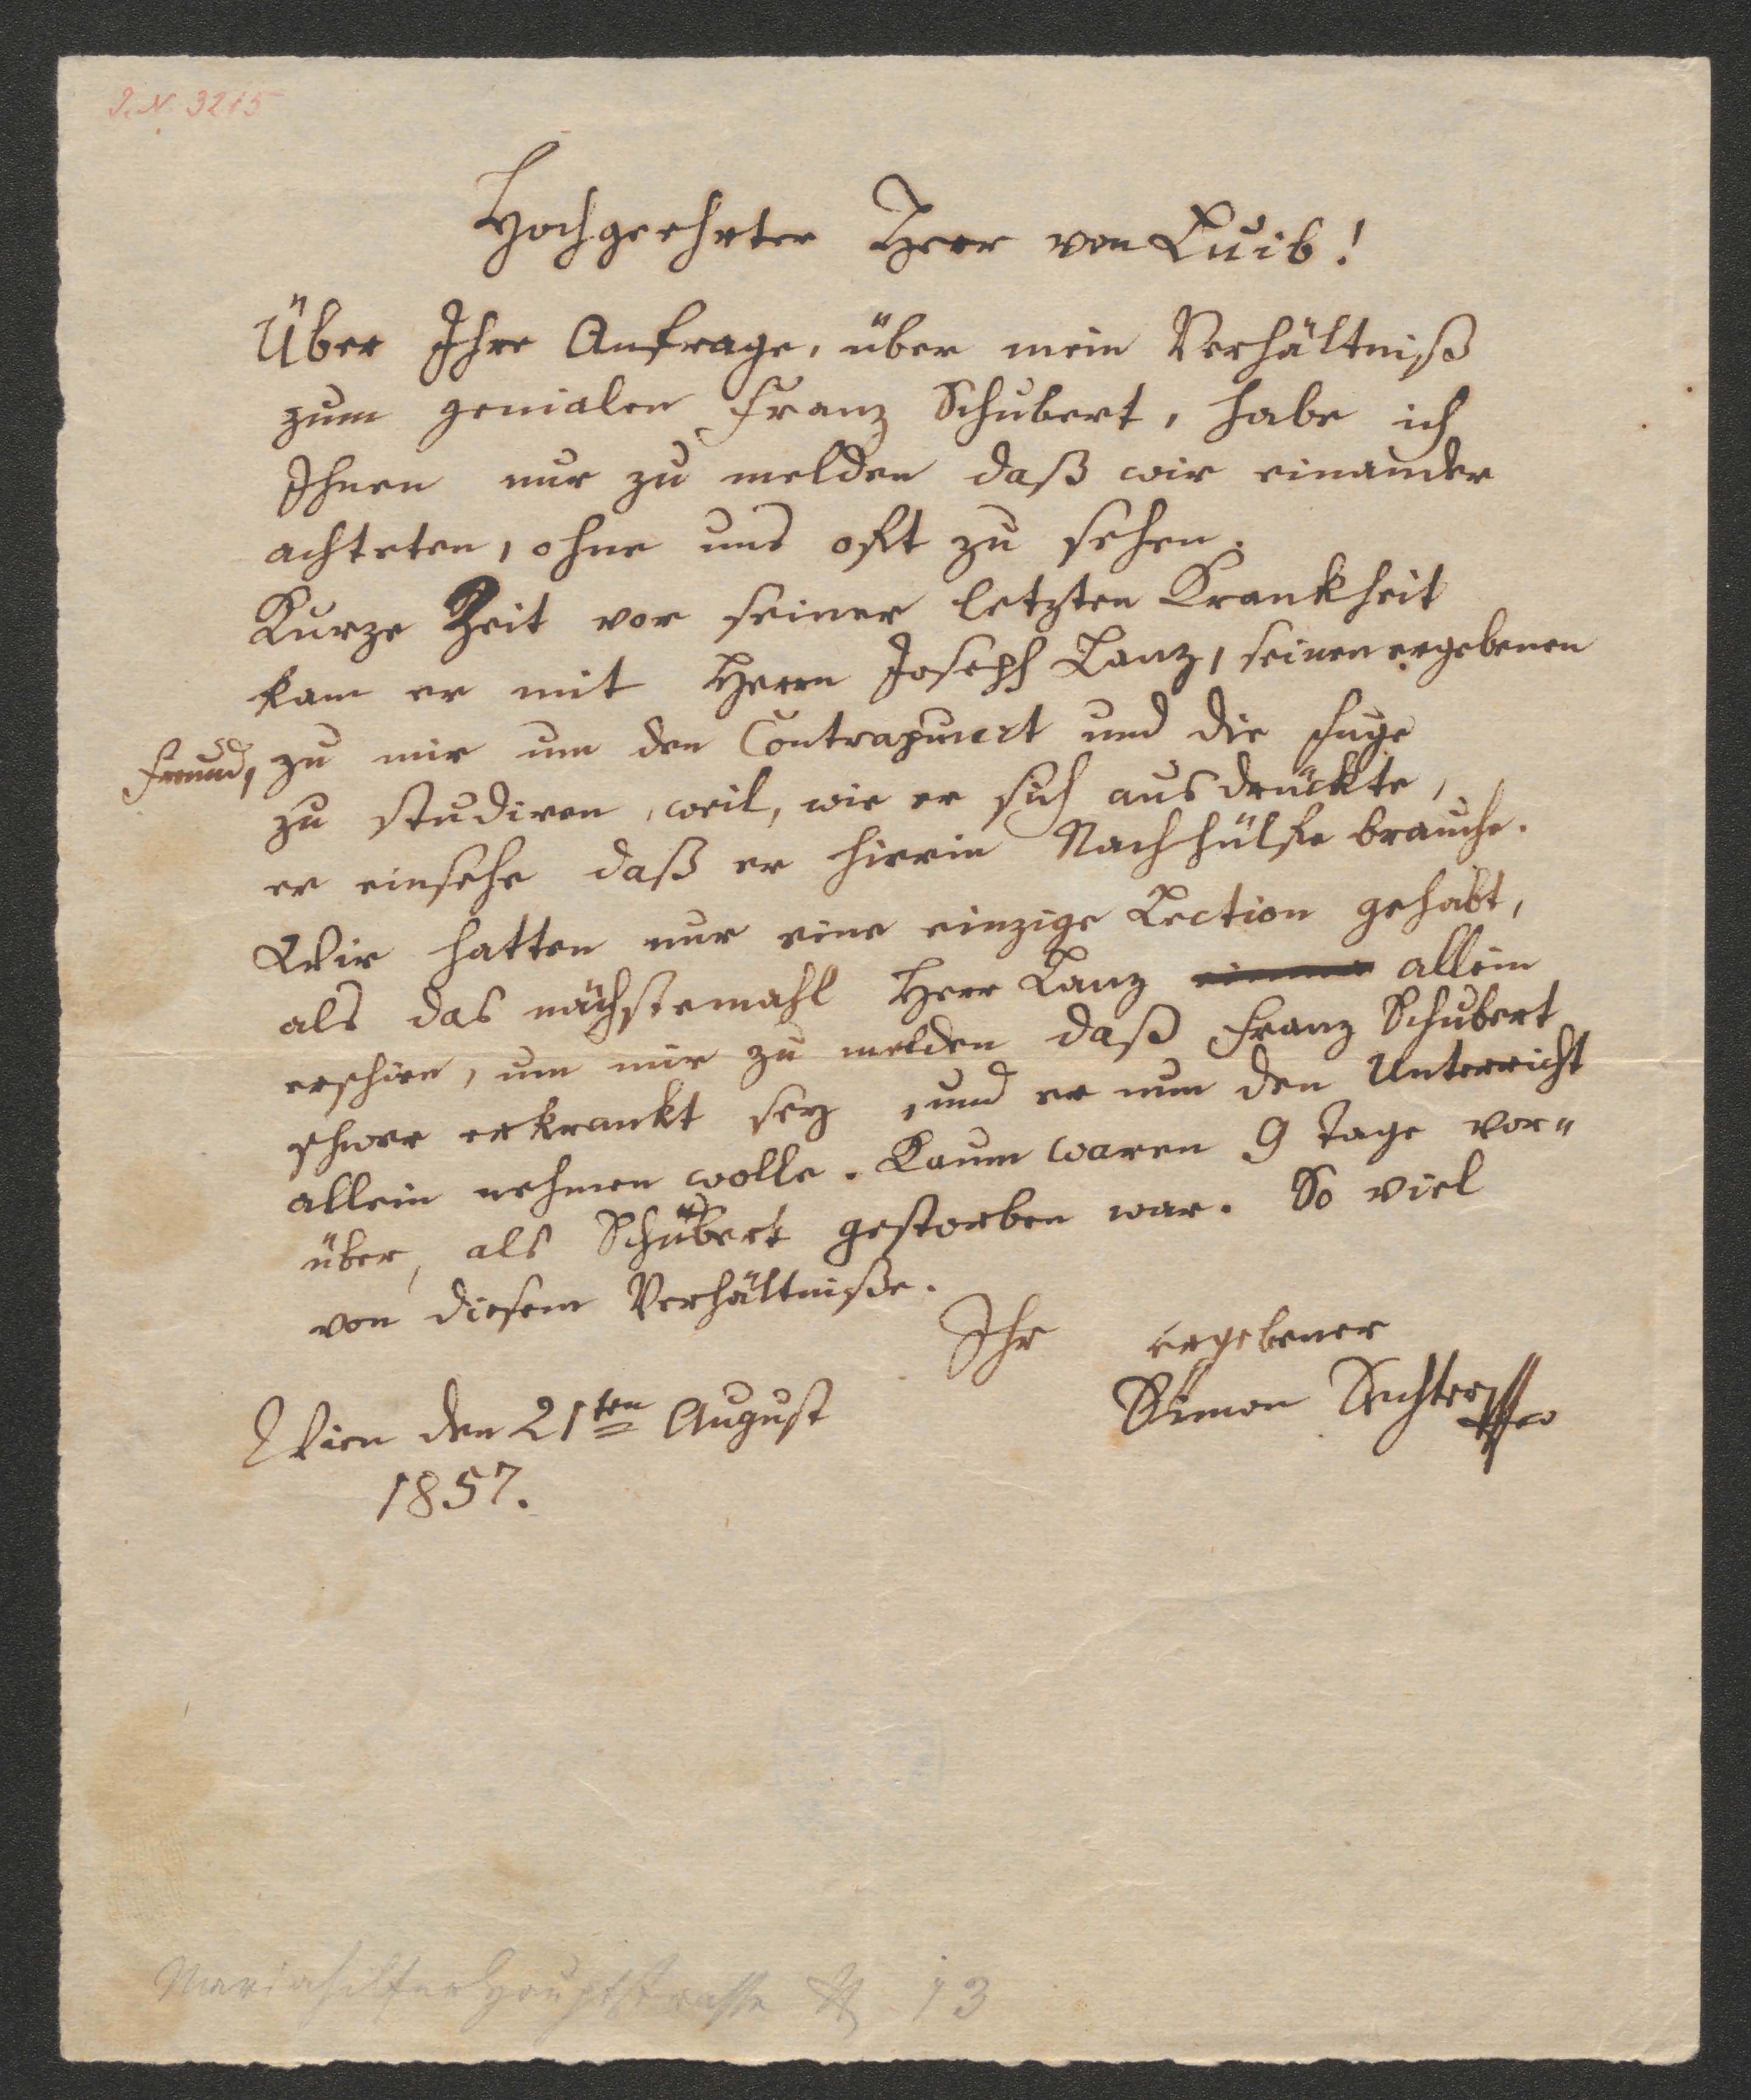 I.N. 3215
Hochgeehrter Herr von Luib!
Über Ihre Anfrage, über mein Verhältniß
zum genialen Franz Schubert, habe ich
Ihnen nur zu melden daß wir einander
achteten, ohne uns oft zu sehen.
Kurze Zeit vor seiner letzten Krankheit
kam er mit Herrn Joseph Lanz, seinen ergebenen
Freund, zu mir um den Contrapunct und die Fuge
zu studiren, weil, wie er sich ausdrückte,
er einsehe daß er hierin Nachhülfe brauche.
Wir hatten nur eine einzige Lection gehabt,
als das nächstemahl Herr Lanz allein
erschien, um mir zu melden daß Franz Schubert
schwer erkrankt sey, und er nun den Unterricht
allein nehmen wolle. Kaum waren 9 Tage vor"
über, als Schubert gestorben war. So viel
von diesem Verhältniße.
Ihr ergebener
Simon Sechter
Wien den 21ten August
1857.
Mariahilfer Hauptstrasse N 13